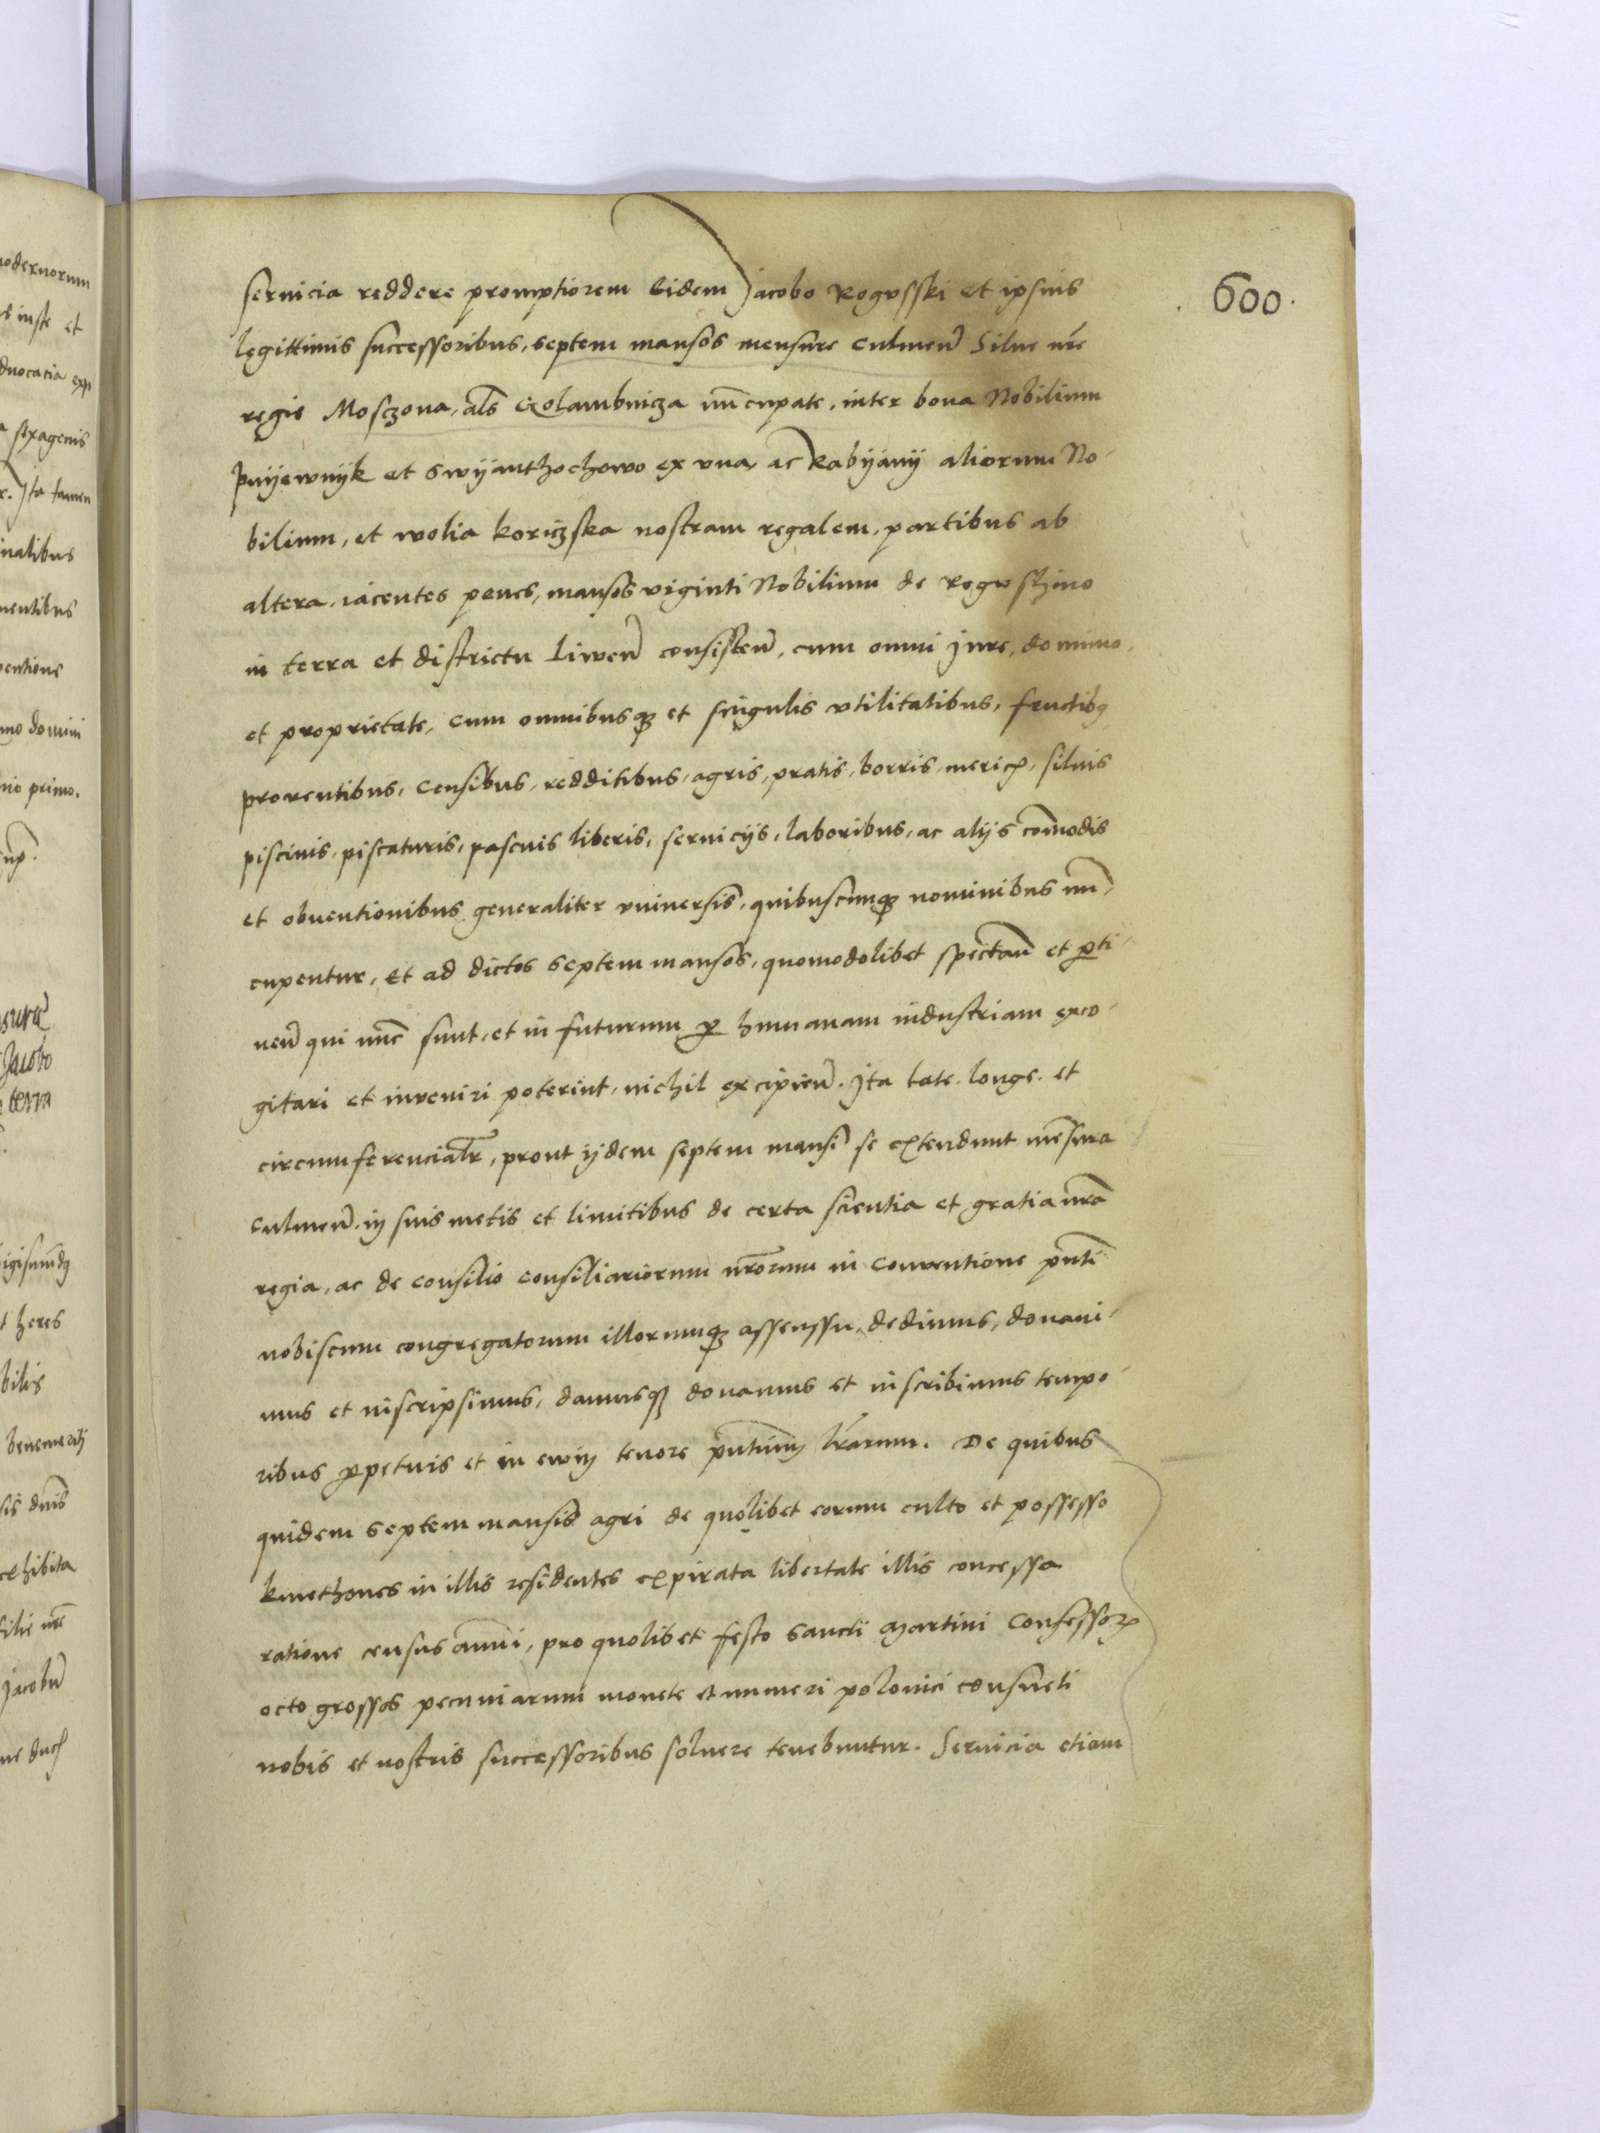 600.
seruicia reddere promptiorem Eidem Jacobo Rogusski et ipsius
legittimis successoribus, septem mansos mensure culmen̄ Silue nr̄e
regie Mosczona, als̄ Golambnicza nūcupate, inter bona Nobilium
pnyewnyk et Swyanthochowo ex vna, ac Kabyany aliorum No-
bilium, et wolia koriczska nostram regalem, partibus ab
altera, iacentes penes, mansos viginti Nobilium de Rogvsszino
in terra et districtu Liwen̄ consisten̄, cum omni Jure, dominio,
et proprietate, cum omnibusq3 et singulis vtilitatibus, fructib9
prouentibus, Censibus, redditibus, agris, pratis, borris, mericis, siluis
piscinis, piscaturis, pascuis liberis, seruicijs, laboribus, ac alijs com̄odis
et obuentionibus generaliter vniuersis, quibuscumq3 nominibus nun̄-
cupentur, et ad dictos septem mansos, quomodolibet spectan̄ et p̱ti-
nen̄ qui nūc sunt, et in futurum p̱ humanam industriam exco-
gitari et inveniri poterint, nichil excipien̄. Ita late. longe. et
circumferencialr̄, prout ijdem septem mansi se extendunt mēsura
culmen̄. in suis metis et limitibus de certa scientia et gratia nr̄a
regia, ac de consilio consiliariorum nr̄orum in Conventione p̄nti
nobiscum congregatorum illorumq3 assenssu, dedimus, donaui-
mus et inscripsimus, damusq3 donamus et inscribimus tempo-
ribus p̱petuis et in ewm tenore p̄ntium lr̄arum. De quibus
quidem septem mansis agri de quolibet eorum culto et possesso
kmethones in illis residentes expirata libertate illis concessa
ratione census annui, pro quolibet festo Sancti Martini Confessor
octo grossos pecuniarum monete et numeri polonici consueti
nobis et nostris successoribus soluere tenebuntur. Seruicia etiam